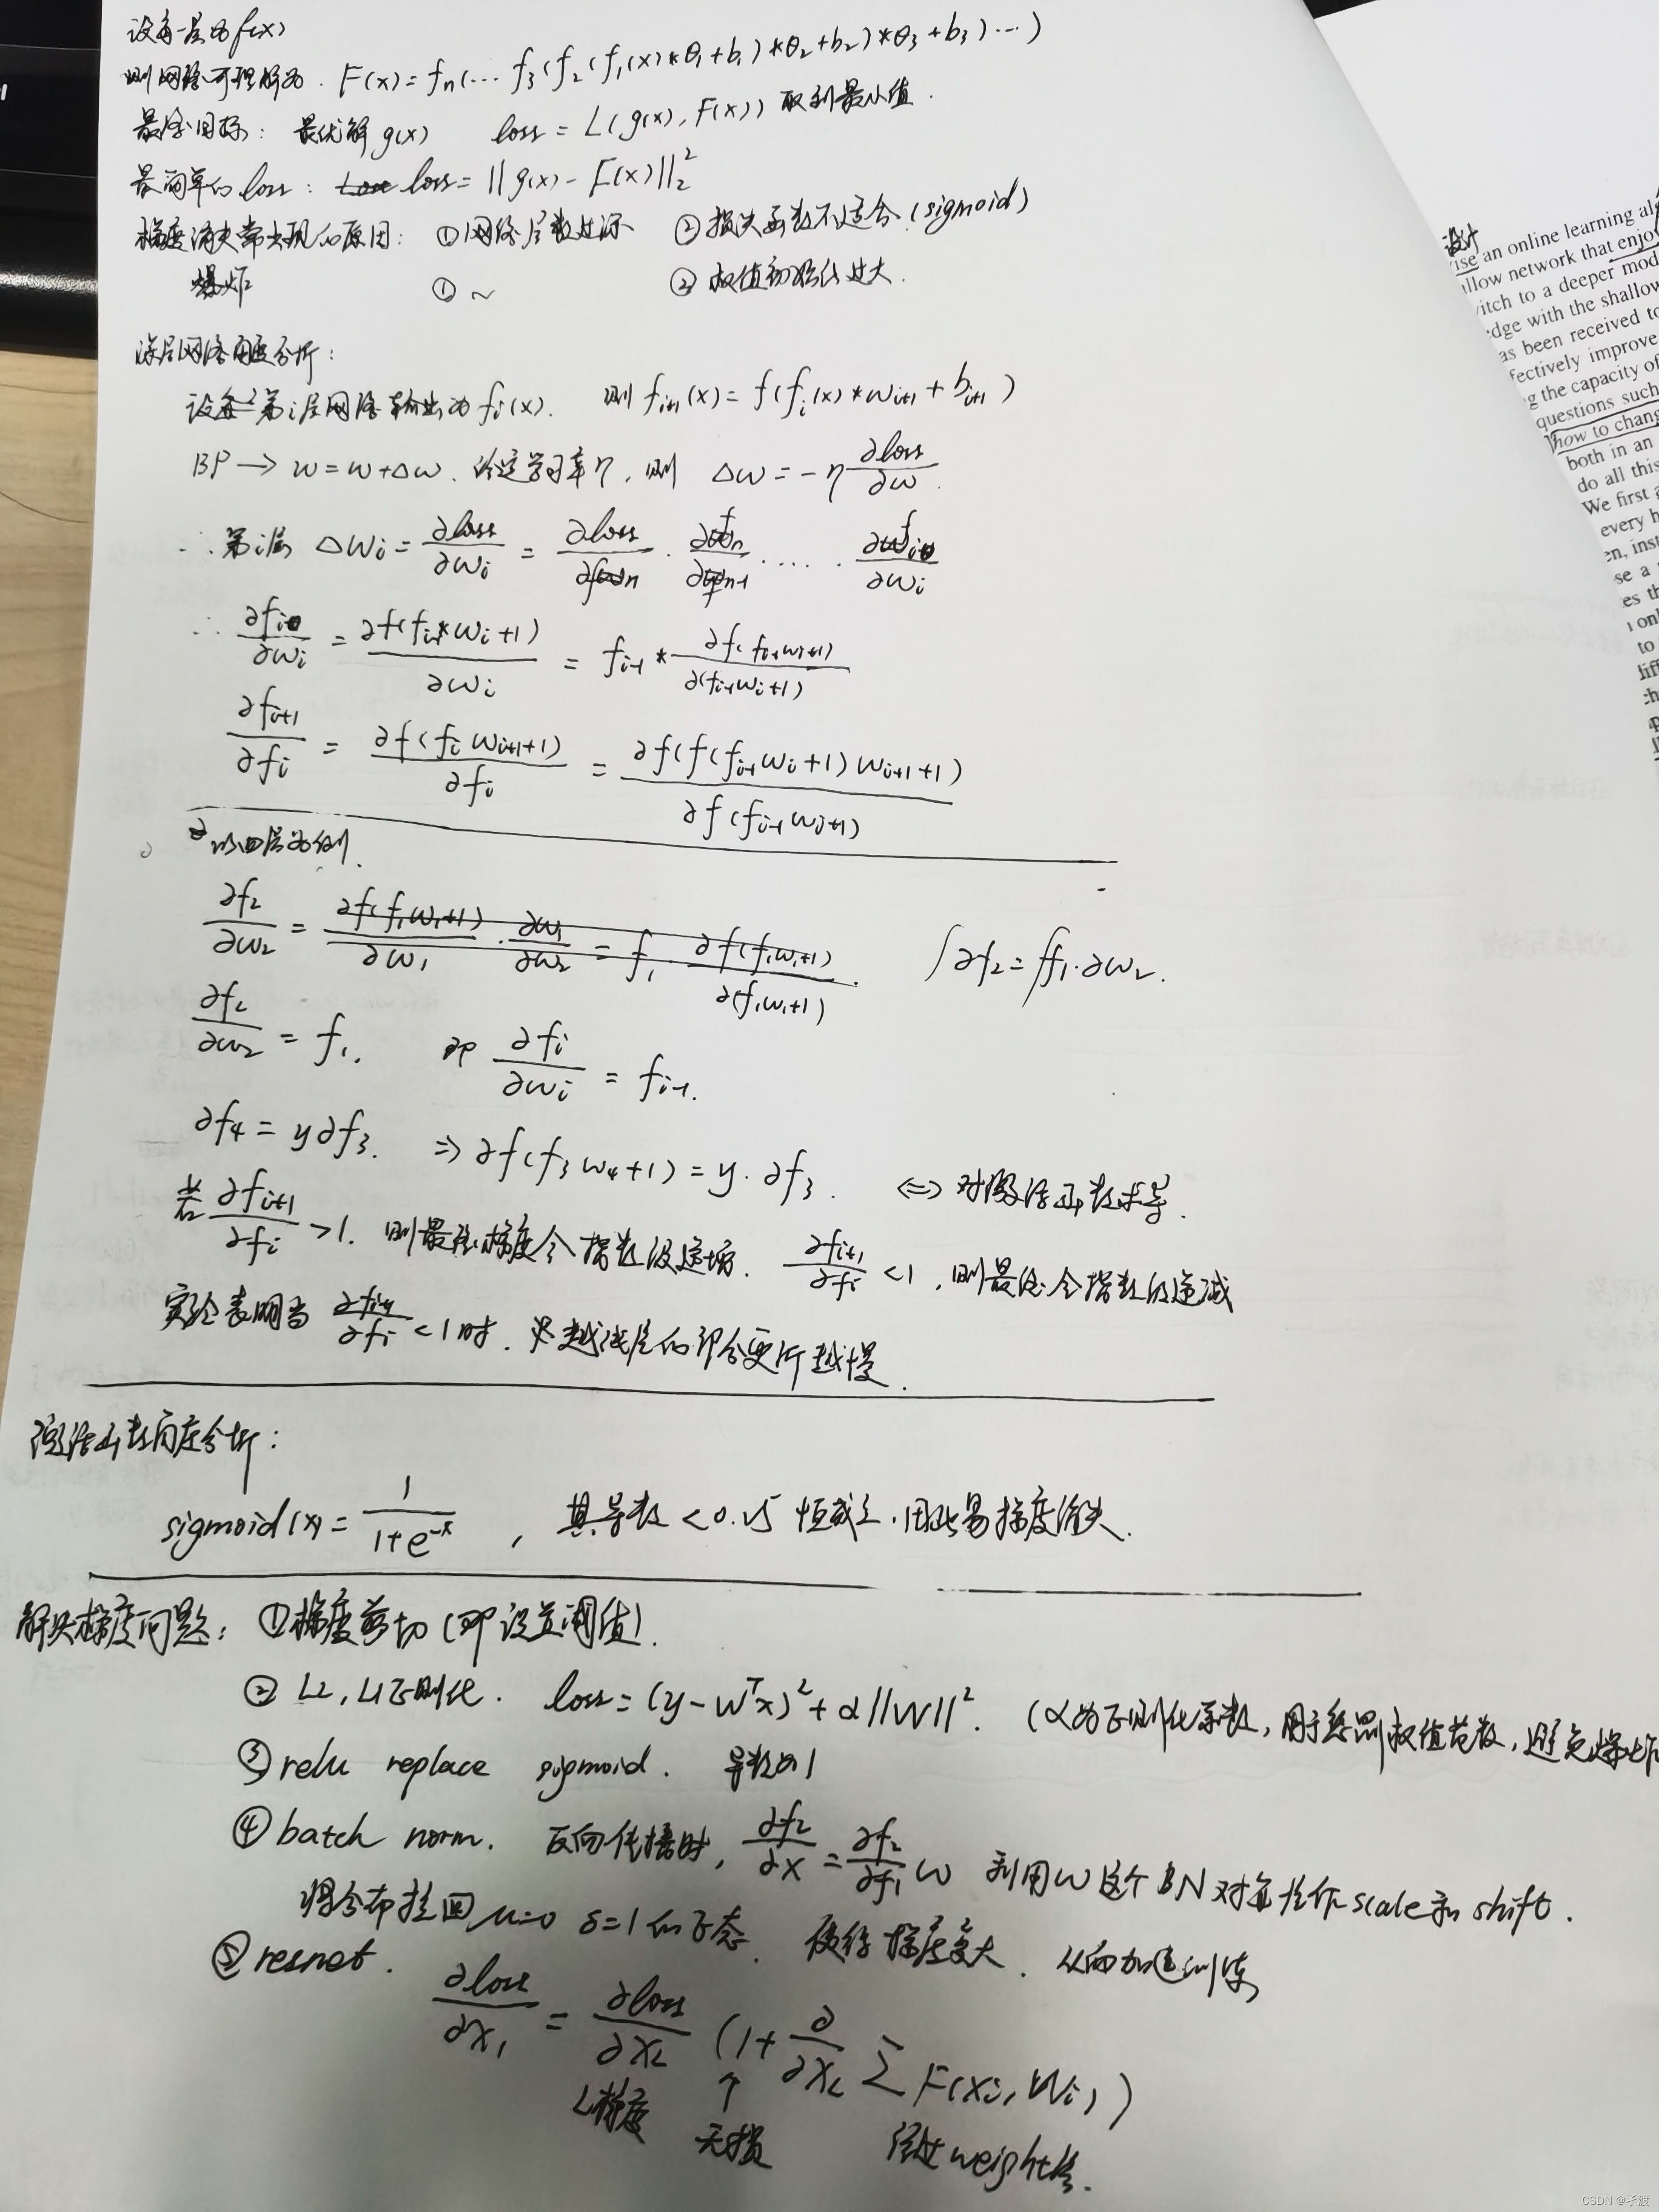 设每一层为f(x)
则网络可理解为. F(x)=fn(… f3(f2(f1(x)*θ1+b1)*θ2+b2)*θ3+b3)…)
最终目标: 最优解g(x) loss = L(g(x), F(x)) 取到最小值.
最简单的loss: loss=||g(x)-F(x)||₂²
梯度消失常出现的原因: ①网络层数过深 ②损失函数不适合(sigmoid)
爆炸 ①~ ②权值初始化过大.
深层网络角度分析:
设第i层网络输出为fi(x). 则 fi+1(x)=f(fi(x)*wi+1+bi+1)
BP→ w=w+Δw. 给定学习率η, 则 Δw=-η ∂loss/∂w.
∴第i层 Δwi=∂loss/∂wi=∂loss/∂fn·∂fn/∂fn-1·….·∂fi/∂wi
∴ ∂fi/∂wi=∂f(fi-1*wi+1)/∂wi = fi-1*∂f(fi-1wi+1)/∂(fi-1wi+1)
∂fi+1/∂fi = ∂f(fi wi+1+1)/∂fi = ∂f(f(fi-1wi+1)wi+1+1)/∂f(fi-1wi+1)
以四层为例.
∂f2/∂w2 = ∂f(f1w1+1)/∂w1·∂w1/∂w2 = f1·∂f(f1w1+1)/∂(f1w1+1). ∫∂f2=∫f1·∂w2.
∂f2/∂w2 = f1. 即 ∂fi/∂wi = fi-1.
∂f4=y∂f3. ⇒∂f(f3w4+1)=y·∂f3. ⇔对激活函数求导.
若∂fi+1/∂fi>1. 则最终梯度会指数级递增. ∂fi+1/∂fi<1, 则最终会指数级递减
实验表明当∂fi+1/∂fi<1时. 越浅层的部分更新越慢.
激活函数角度分析:
sigmoid(x)=1/1+e^-x , 其导数<0.25恒成立,因此易梯度消失.
解决梯度问题: ①梯度剪切(即设置阈值).
②L2, L1正则化. loss=(y-Wᵀx)²+α||W||². (α为正则化系数,用于限制权值范数,避免爆炸
③relu replace sigmoid. 导数为1
④batch norm. 反向传播时, ∂f2/∂x=∂f2/∂f1 w 利用w这个BN对 作scale和shift.
将分布拉回μ=0 δ=1的正态. 使得梯度变大. 从而加速训练
⑤resnet. ∂loss/∂x1 = ∂loss/∂xL (1+∂/∂xL ∑F(xi,Wi))
L梯度 ↑无损 经过weight层.
设计
ise an online learning al
llow network that enjo
itch to a deeper mod
dge with the shallow
as been received to
fectively improve
g the capacity of
questions such
how to chang
both in an
do all this
We first a
every h
en, inst
se a
es th
onl
to
diff
CSDN @孑渡